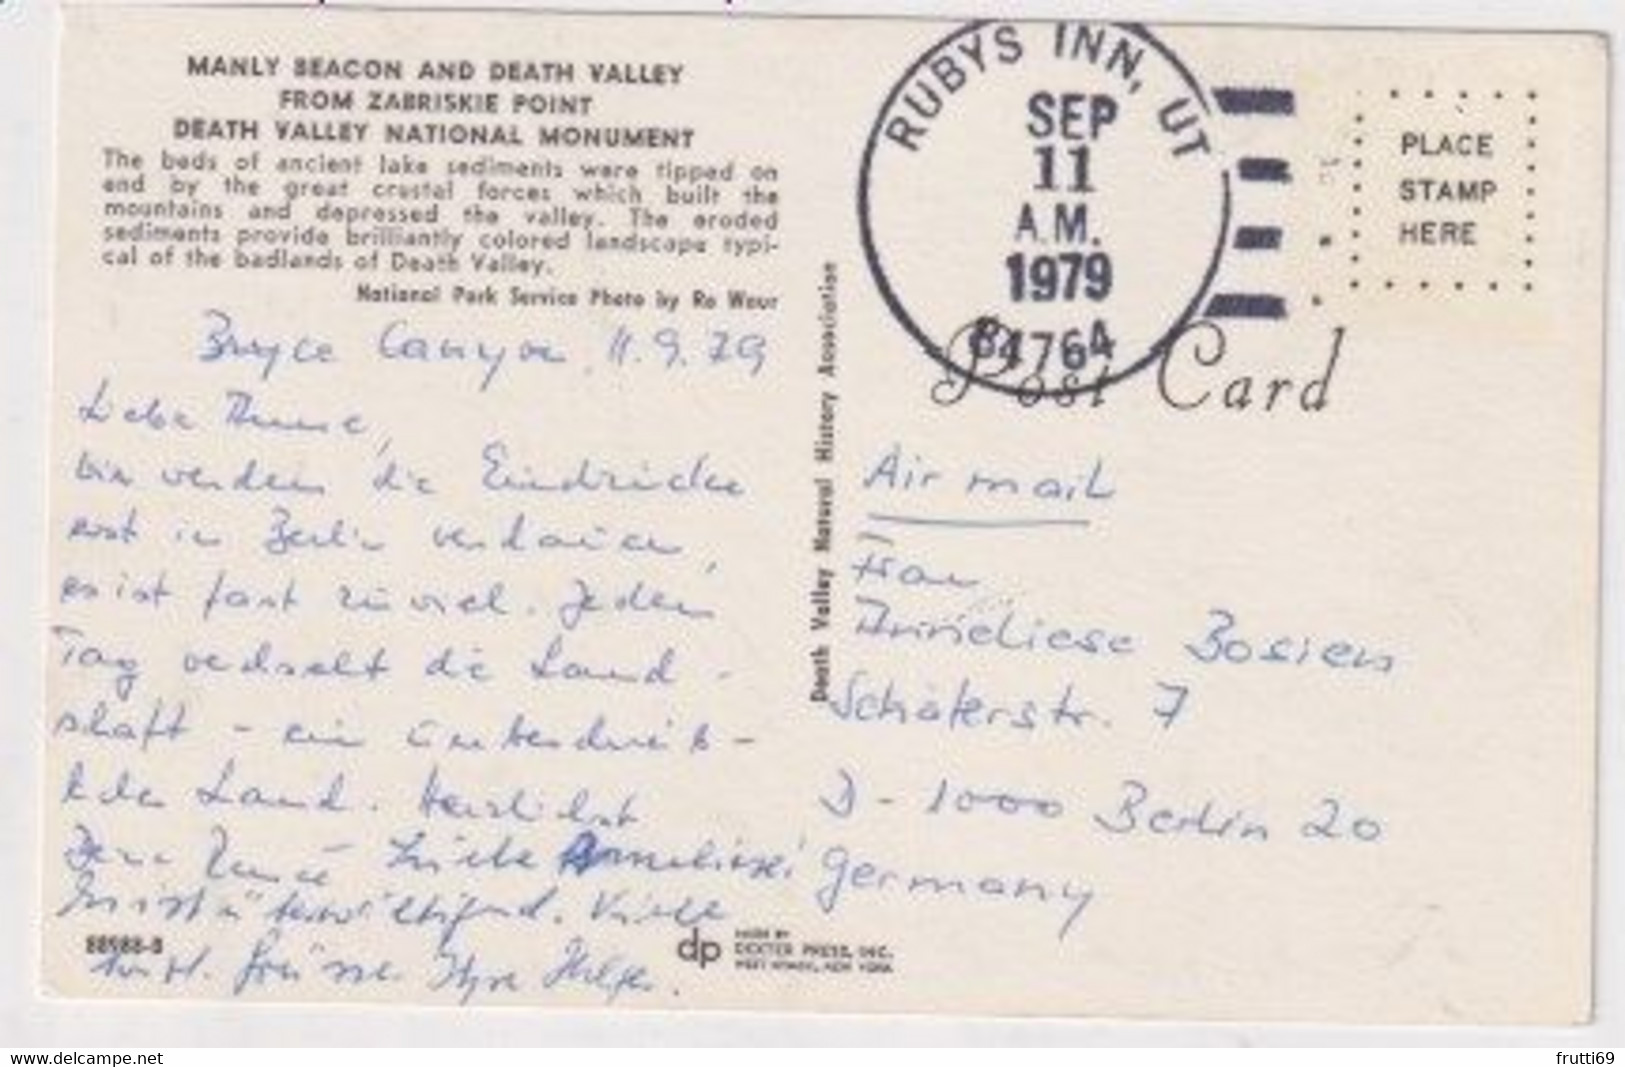 MANLY BEACON AND DEATH VALLEY
FROM ZABRISKIE POINT
DEATH VALLEY NATIONAL MONUMENT
The beds of ancient lake sediments were tipped on
end by the great crustal forces which built the
mountains and depressed the valley. The eroded
sediments provide brilliantly colored landscape typi-
cal of the badlands of Death Valley.
National Park Service Photo by Ro Wauer
Bryce Canyon, 11.9.79
Liebe Anne,
wir werden die Eindrücke
erst in Berlin verdauen,
es ist fast zu viel. Jeden
Tag wechselt die Land-
schaft - ein
Land. Herzlichst
Liebe Anneliese!
Es ist überwältigend. Viele
herzl. Grüsse Ihre Helga.
88988-B
dp MADE BY
DEXTER PRESS, INC.
WEST NYACK, NEW YORK
Death Valley Natural History Association
RUBYS INN, UT
SEP
11
A.M.
1979
84764
PLACE
STAMP
HERE
Post Card
Air mail
Frau
Anneliese Bosien
Schäferstr. 7
D-1000 Berlin 20
Germany
www.delcampe.net
frutti69